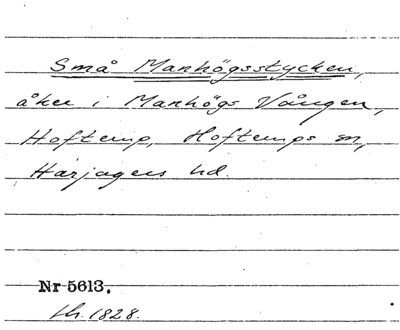 Små Manhögsstycken,
åker i Manhögs Vången,
Hofterup, Hofterups sn,
Harjagers hd.
Nr 5613.
th. 1828.